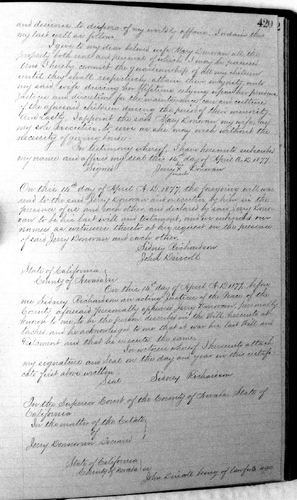 420
and desirous to dispose of my worldly affairs I ordain this
my last will as follows
I give to my dear beloved wife Mary Donovan all the
property both real and personal of which I may be possessed
and I hereby commit the guardianship of all my children
until they shall respectively attain their majority unto
my said wife during her lifetime relying upon her prudence
and direction for the maintenance and culture
of the aforesaid children during the period of their minority
And Lastly, I appoint the said Mary Donovan my wife, to be
my sole executrix, to serve as she may wish without the
necessity of giving bonds
In testimony whereof, I have hereunto subscribed
my name and affixed my seal this 14th day of April A.D. 1877
Signed Jerry X Donovan
mark
On this 14th day of April A.D. 1877, the foregoing will was
read to the said Jerry Donovan and executed by him in the
presence of us and each other and declared by said Jerry Dono-
van to be his last will and testament, and we subscribe our
names as witnesses thereto at his request in the presence
of said Jerry Donovan and each other.
Sidney Richardson
John Driscoll
State of California
County of Nevada
On this 14th day of April A.D. 1877, before
me Sidney Richardson an acting Justice of the Peace of the
County aforesaid personally appeared Jerry Donovan, personally
known to me to be the person described in the Will hereunto at-
tached and acknowledged to me that it was his last Will and
testament and that he executed the same
In witness whereof I hereunto attach
my signature and Seal on the day and year in this certifi-
cate first above written
Seal Sidney Richardson
In the Superior Court of the County of Nevada State of
California
In the matter of the Estate
of
Jerry Donnovan Deceased
State of California
County of Nevada
John Driscoll being of lawful age